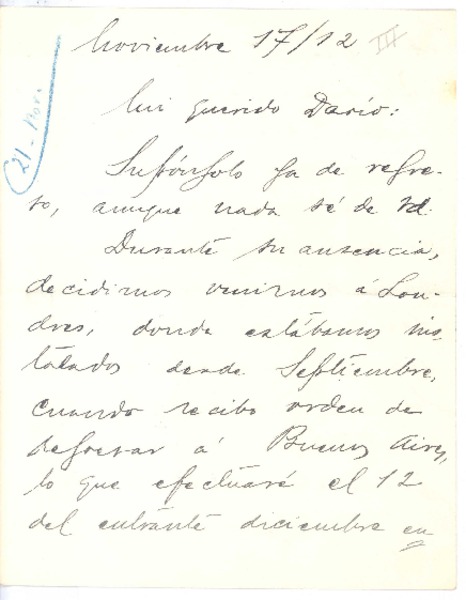 Noviembre 17/12 III
21-Nov.
Mi querido Darío:
Supóngolo ya de regre-
so, aunque nada sé de Vd.
Durante su ausencia,
decidimos venirnos á Lon-
dres, donde estábamos ins-
talados desde Septiembre,
cuando recibo orden de
regresar á Buenos Aires,
lo que efectuaré el 12
del entrante diciembre en